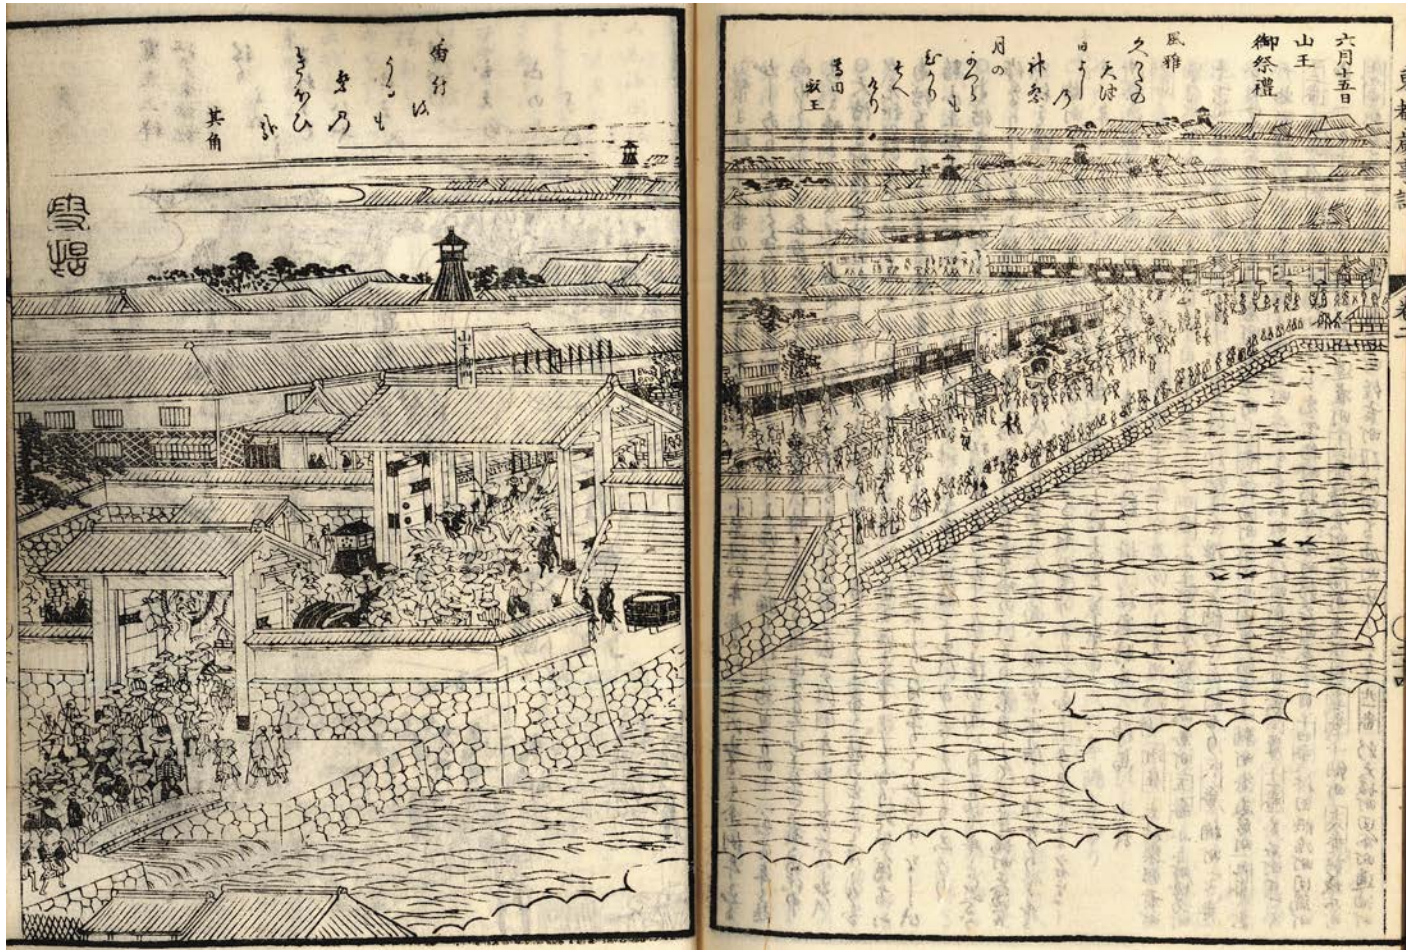 東都歳事記 卷二
六月十五日
山王
御祭禮
風雅
久かたの
天津
日よし
乃
神祭
月の
かつらも
ひかり
そへ
けり
尊円
親王
番付を
うるも
祭乃
きほひ
哉
其角
雪堤